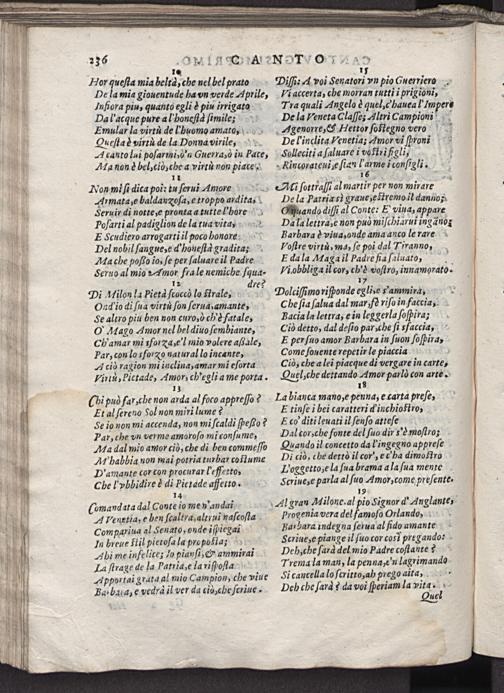 236
CANTO
10
Hor questa mia beltà, che nel bel prato
De la mia giouentude ha vn verde Aprile,
Infiora piu, quanto egli è piu irrigato
Da l'acque pure al honestà simile;
Emular la virtù de l'huomo amato,
Questa è virtù de la Donna virile,
A canto lui posarmi, ò'n Guerra, ò in Pace,
Ma non è bel, ciò, che a virtù non piace.
11
Non mi si dica poi: tu serui Amore
Armata, e baldanzosa, e troppo ardita,
Seruir di notte, e pronta a tutte l'hore
Posarti al padiglion de la tua vita,
E Scudiero arrogarti il poco honore
Del nobil sangue, e d'honestà gradita;
Ma che posso io, se per saluare il Padre
Seruo al mio Amor fra le nemiche squa-
dre?
12
Di Milon la Pietà scoccò lo strale,
Ond'io di sua virtù son serua, amante,
Se altro piu ben non curo, ò ch'è fatale,
O' Mago Amor nel bel diuo sembiante,
Ch'amar mi sforza, e'l mio volere assale,
Par, con lo sforzo natural lo incante,
A ciò ragion mi inclina, amar mi esorta
Virtù, Pietade, Amor, ch'egli a me porta.
13
Chi può far, che non arda al foco appresso?
Et al sereno Sol non miri lume?
Se io non mi accenda, non mi scaldi spesso?
Par, che vn verme amoroso mi consume,
Ma dal mio amor ciò, che di ben commesso
M'habbia non mai potria turbar costume
D'amante cor con procurar l'effetto,
Che l'vbbidire è di Pietade affetto.
14
Comandata dal Conte io me n'andai
A Venetia, e ben scaltra, altrui nascosta
Comparíua al Senato, onde ispiegai
In breue stil pietosa la proposta;
Ahi me infelice; Io piansi, & ammirai
La strage de la Patria, e la risposta
Apportai grata al mio Campion, che viue
Barbara, e vedrà il ver da ciò, che scriue.
15
Dissi: A voi Senatori vn pio Guerriero
Vi accerta, che morran tutti i prigioni,
Tra quali Angelo è quel, c'hauea l'Impero
De la Veneta Classe; Altri Campioni
Agenorre, & Hettor sostegno vero
De l'inclita Venetia; Amor vi sproni
Solleciti a saluare i vostri figli,
Rincorateui, e sian l'arme i consigli.
16
Mi sottrassi al martir per non mirare
De la Patria il graue, estremo il danno;
O quando dissi al Conte: E' viua, appare
Da la lettra, e non può mischiarui ingāno;
Barbara è viua, onde ama anco le rare
Vostre virtù, ma, se poi dal Tiranno,
E da la Maga il Padre fia saluato,
Vi obbliga il cor, ch'è vostro, innamorato.
17
Dolcissimo risponde egli, e s'ammira,
Che sia salua dal mar, fè riso in faccia,
Bacia la lettra, e in leggerla sospira;
Ciò detto, dal desio par, che si sfaccia,
E per suo amor Barbara in suon sospira,
Come souente repetir le piaccia
Ciò, che a lei piacque di vergare in carte,
Quel, che dettando Amor parlò con arte.
18
La bianca mano, e penna, e carta prese,
E tinse i bei caratteri d'inchiostro,
E co' diti leuati il senso attese
Dal cor, che fonte del suo dir s'è mostro;
Quando il concetto da l'ingegno apprese
Di ciò, che dettò il cor', e c'ha dimostro
L'oggetto; e la sua brama a la sua mente
Scriue, e parla al suo Amor, come presente.
19
Al gran Milone, al pio Signor d'Anglante,
Progenia vera del famoso Orlando,
Barbara indegna serua al fido amante
Scriue, e piange il suo cor così pregando:
Deh, che sarà del mio Padre costante?
Trema la man, la penna, e'n lagrimando
Si cancella lo scritto, ah prego aita,
Deh che sarà? da voi speriam la vita.
Quel